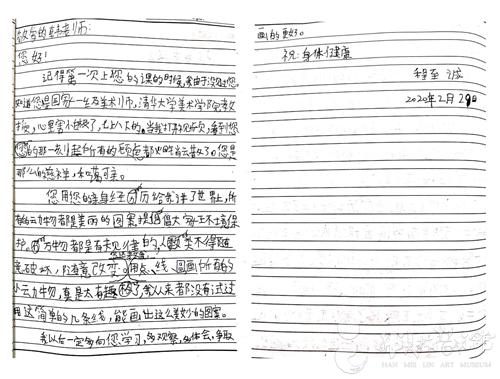 敬爱的韩老师:
您好!
记得第一次上您的课的时候,
知道您是国家一级美术师,清华大学美术学院教
授,心里害怕极了,七上八下的。当我打开视频,看到您
您的那一刻起所有的顾虑都火 烟云散了。您是
那么的慈祥,和蔼可亲。
您用您的亲身经历给我讲了世界上,所
有的动物都是美丽的图案,提倡大家环境保
护。万物都是有规律的,人类不得随
意破坏,随意改变。用点、线、圆画所有的
小动物,真是太有趣极了,我从来都没有试过
用这简单的几条线,能画出这么美妙的图案。
我以后一定多向您学习,多观察,多体会,争取
画的更好。
祝:身体健康
程至
2020年2月29日
韩美林艺术馆
HAN MEI LIN ART MUSEUM